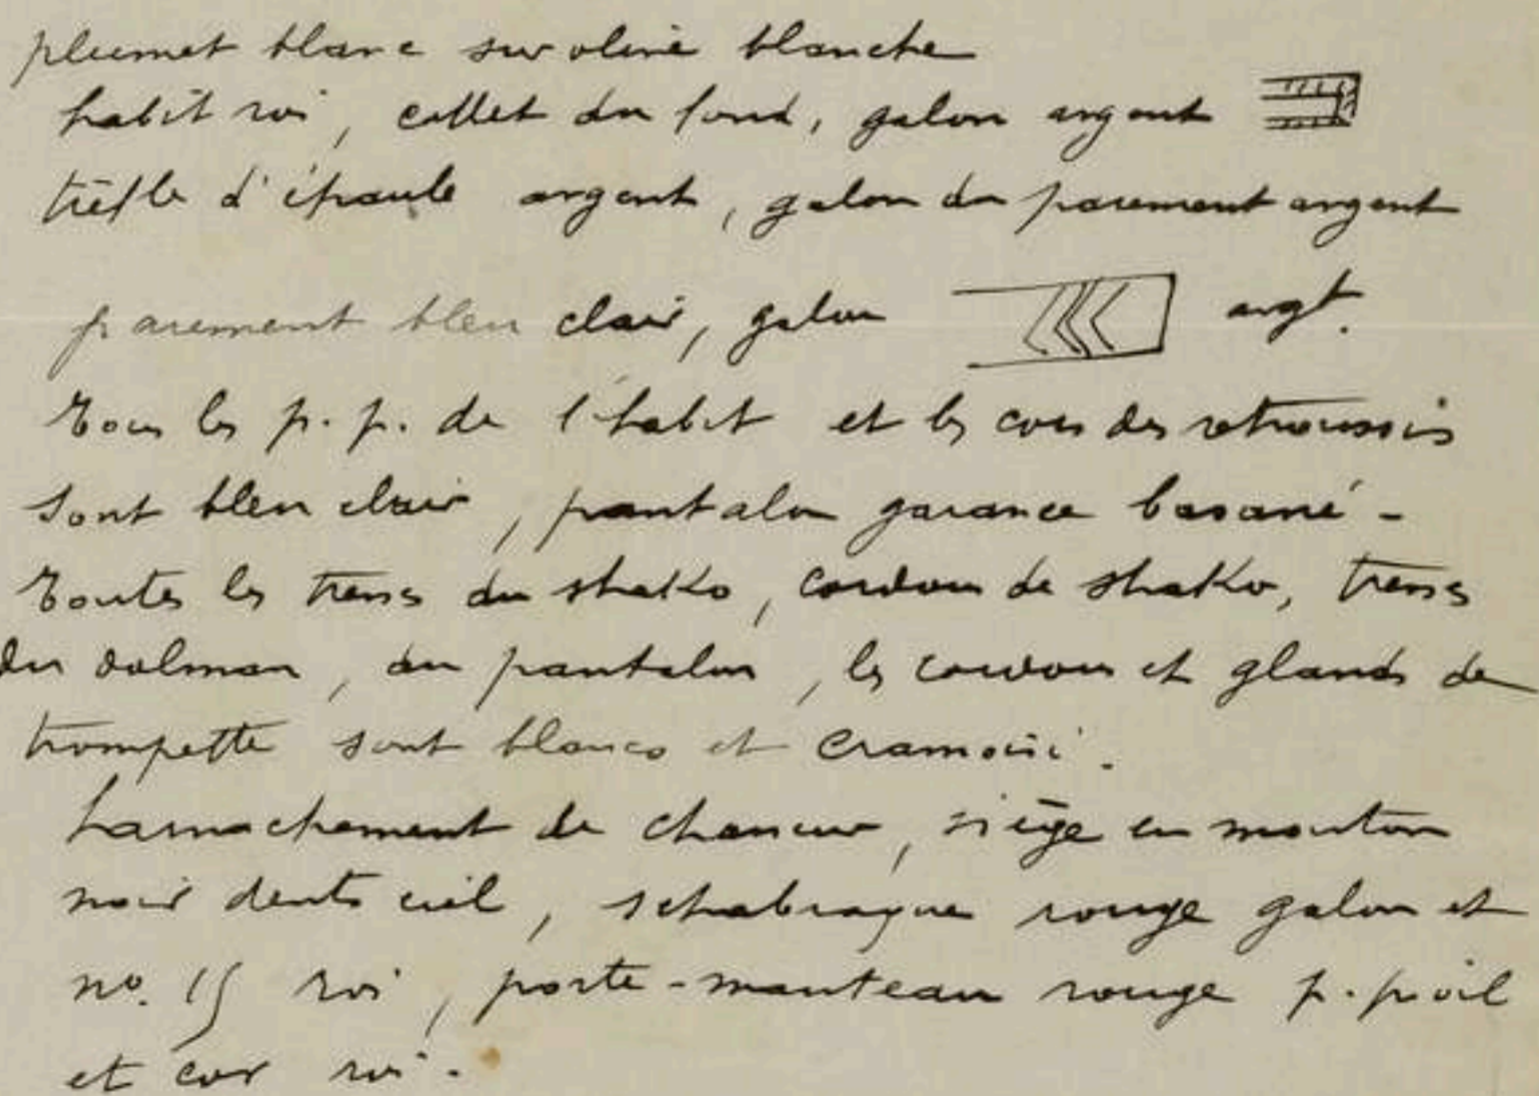 plumet blanc sur olive blanche
habit roi, collet du fond, galon argent
trèfle d'épaule argent, galon du parement argent
parement bleu clair, galon argt.
Tous les p. p. de l'habit et les cors des retroussis
sont bleu clair, pantalon garance basané -
Toutes les tresses du shako, cordon de shako, tresses
du dolman, du pantalon, les cordons et glands de
trompette sont blancs et cramoisi.
harnachement de chasseur, siège en mouton
noir dents ciel, schabraque rouge galon et
no. 15 roi, porte-manteau rouge p. poil
et cor roi.